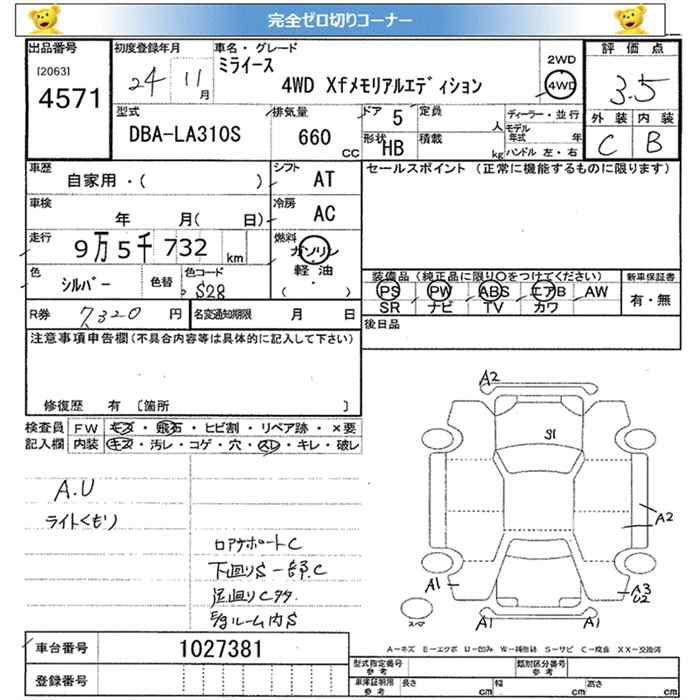 完全ゼロ切りコーナー
出品番号 初度登録年月 車名・グレード 2WD 評価点
[2063] ミライース
4571 24 11月 4WD Xfメモリアルエディション 4WD 3.5
型式 排気量 ドア 5 定員 人 ディーラー・並行 外装 内装
DBA-LA310S 660 CC 形状 HB 積載 kg モデル年式 年 C B
ハンドル 左・右
車歴 自家用・( ) シフト AT セールスポイント (正常に機能するものに限ります)
車検 年 月( 日) 冷房 AC
走行 9万5千732 km 燃料 ガソリン
軽油
( )
色 シルバー 色替 色コード S28
装備品 (純正品に限り○をつけてください) 新車保証書
PS PW ABS エアB AW 有・無
SR ナビ TV カワ
R券 7320 円 名変通知期限 月 日 後日品
注意事項申告欄(不具合内容等は具体的に記入して下さい)
修復歴 有 〔箇所 〕
検査員 FW キズ・飛石・ヒビ割・リペア跡・×要
記入欄 内装 キズ・汚レ・コゲ・穴・スレ・キレ・破レ
A.U
ライトくもり
ロアサポートC
下廻りS一部C
足廻りCサ
E/gルーム内S
A2
S1
A2
A1
A3
U2
スペア
A1
A1
A=キズ E=エクボ U=凹み W=補修跡 S=サビ C=腐食 XX=交換済
車台番号 1027381
登録番号
型式指定番号 参考 類別区分番号 参考
車庫証明用 参考 長さ cm 幅 cm 高さ cm